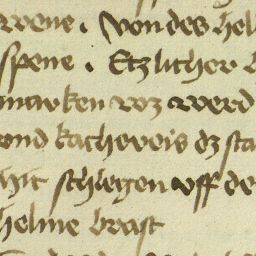 Von des hel
spene . Etzlicher
marken vz werd
vnd kachereis dz sta
mit schlegen vff de
helme brast